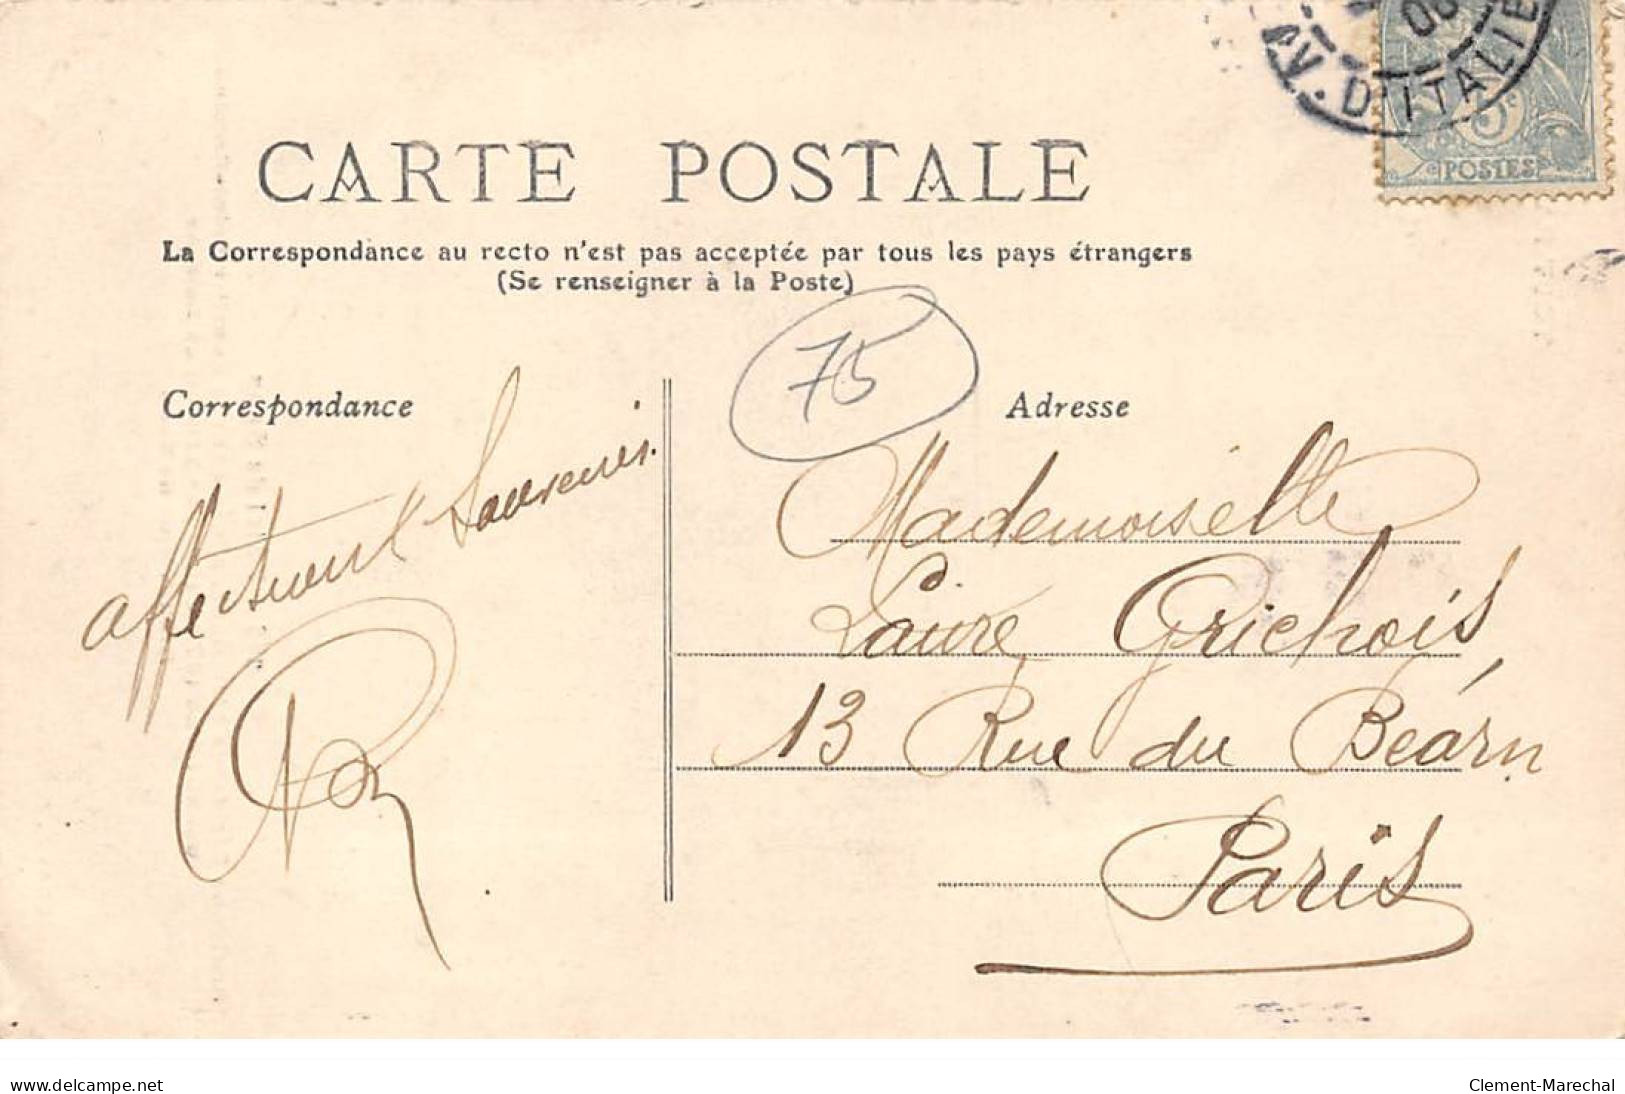 AV. D'ITALIE
06
5c
POSTES
CARTE POSTALE
La Correspondance au recto n'est pas acceptée par tous les pays étrangers
(Se renseigner à la Poste)
75
Correspondance
affectueux Souvenirs.
Adresse
Mademoiselle
Laure Grichois
13 Rue du Béarn
Paris
www.delcampe.net
Clement-Marechal